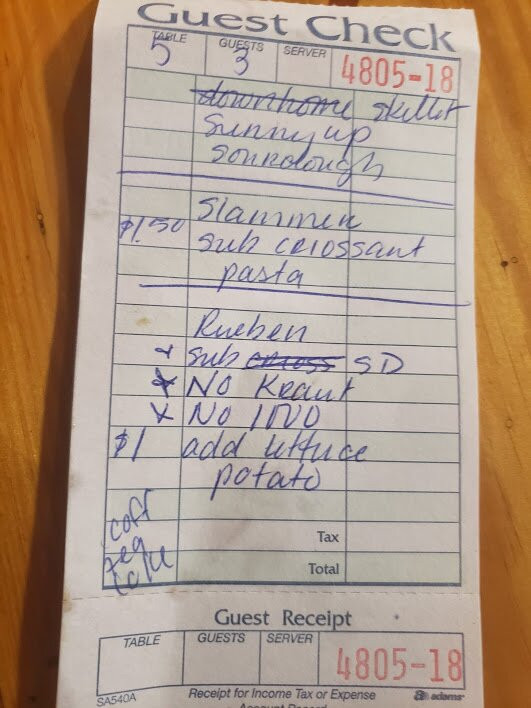 Guest Check
TABLE GUESTS SERVER
5 3 4805-18
downhome skillet
Sunny up
Sourdough
Slammer
$1.50 sub croissant
pasta
Rueben
x sub croiss SD
x NO Kraut
x NO 1000
$1 add lettuce
potato
coff
Tax
Total
Guest Receipt
TABLE GUESTS SERVER
4805-18
SA540A Receipt for Income Tax or Expense adams
Account Record